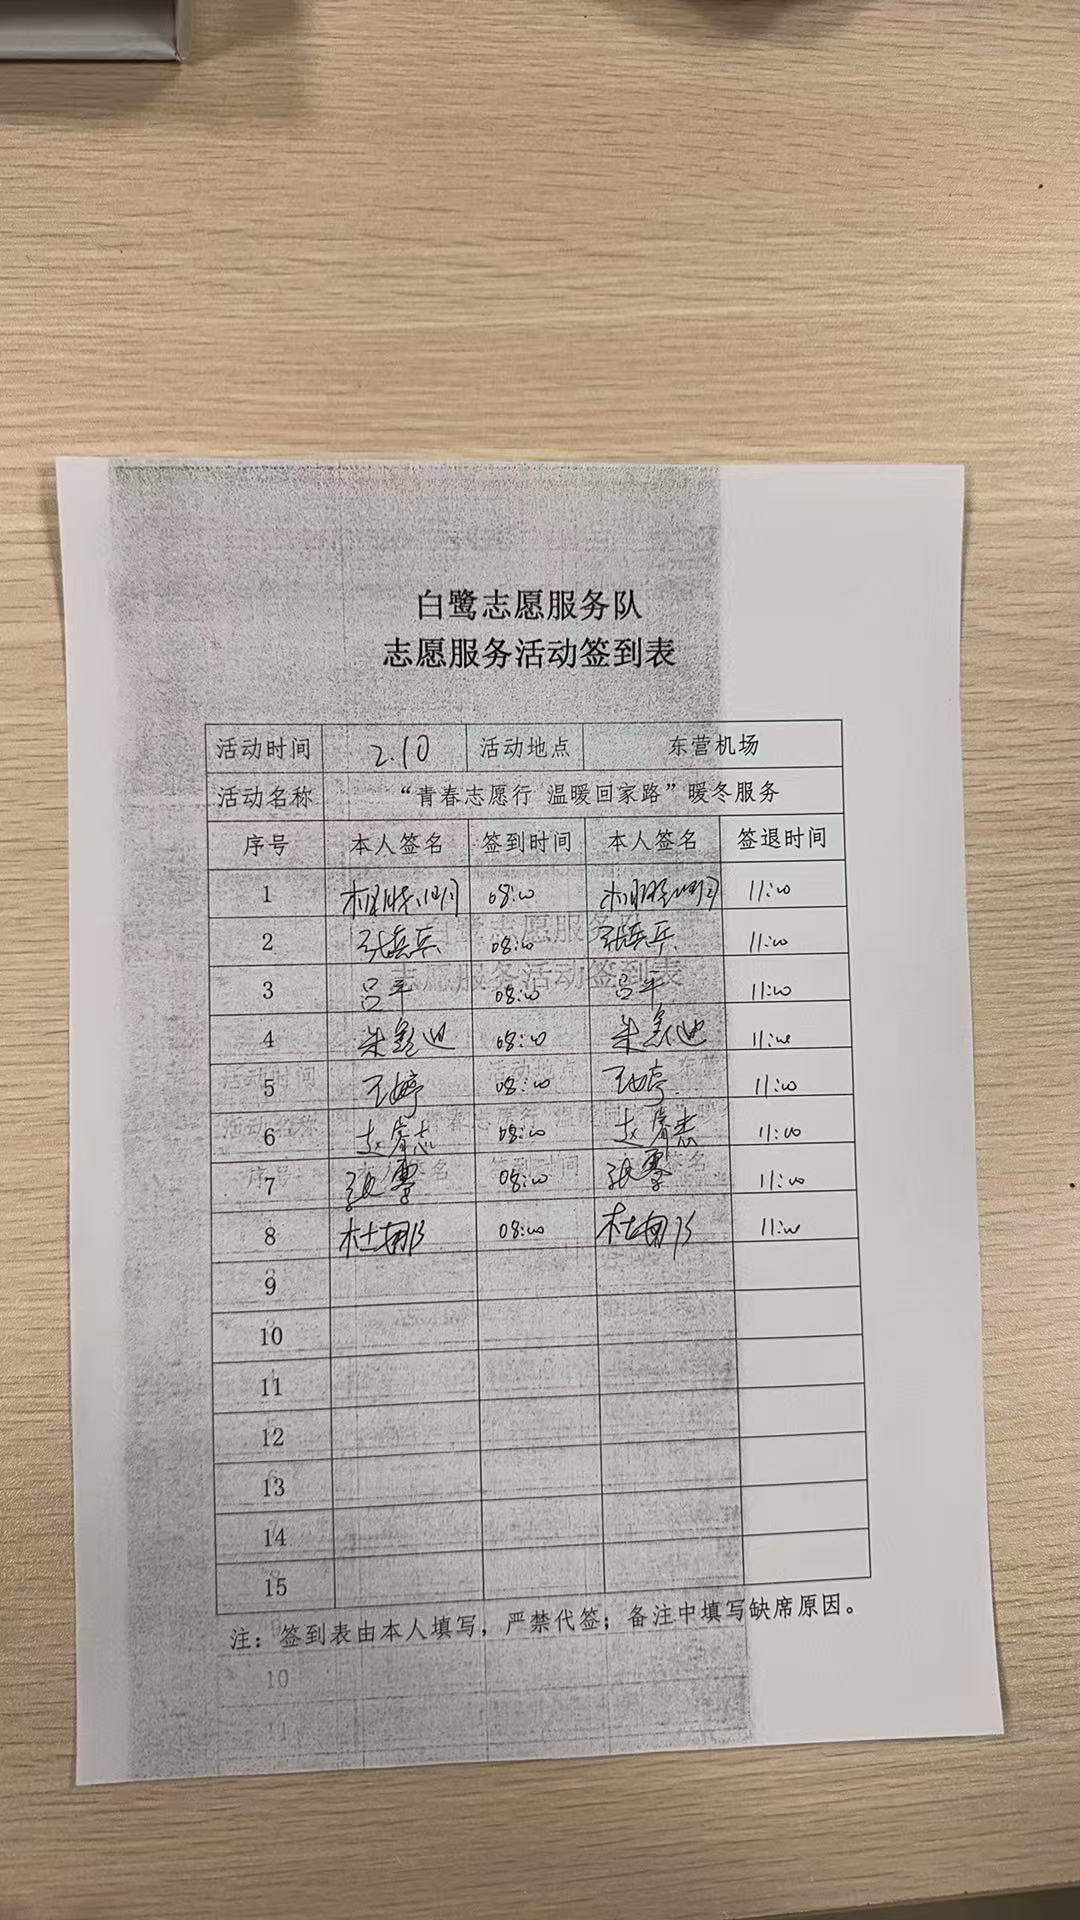 白鹭志愿服务队
志愿服务活动签到表
活动时间 2.10 活动地点 东营机场
活动名称 “青春志愿行 温暖回家路”暖冬服务
序号 本人签名 签到时间 本人签名 签退时间
1 08:00 11:00
2 08:00 11:00
3 吕平 08:00 吕平 11:00
4 08:00 11:00
5 王婷 08:00 王婷 11:00
6 赵睿志 08:00 赵睿志 11:00
7 08:00 11:00
8 杜娜 08:00 杜娜 11:00
9
10
11
12
13
14
15
注：签到表由本人填写，严禁代签；备注中填写缺席原因。
10
11